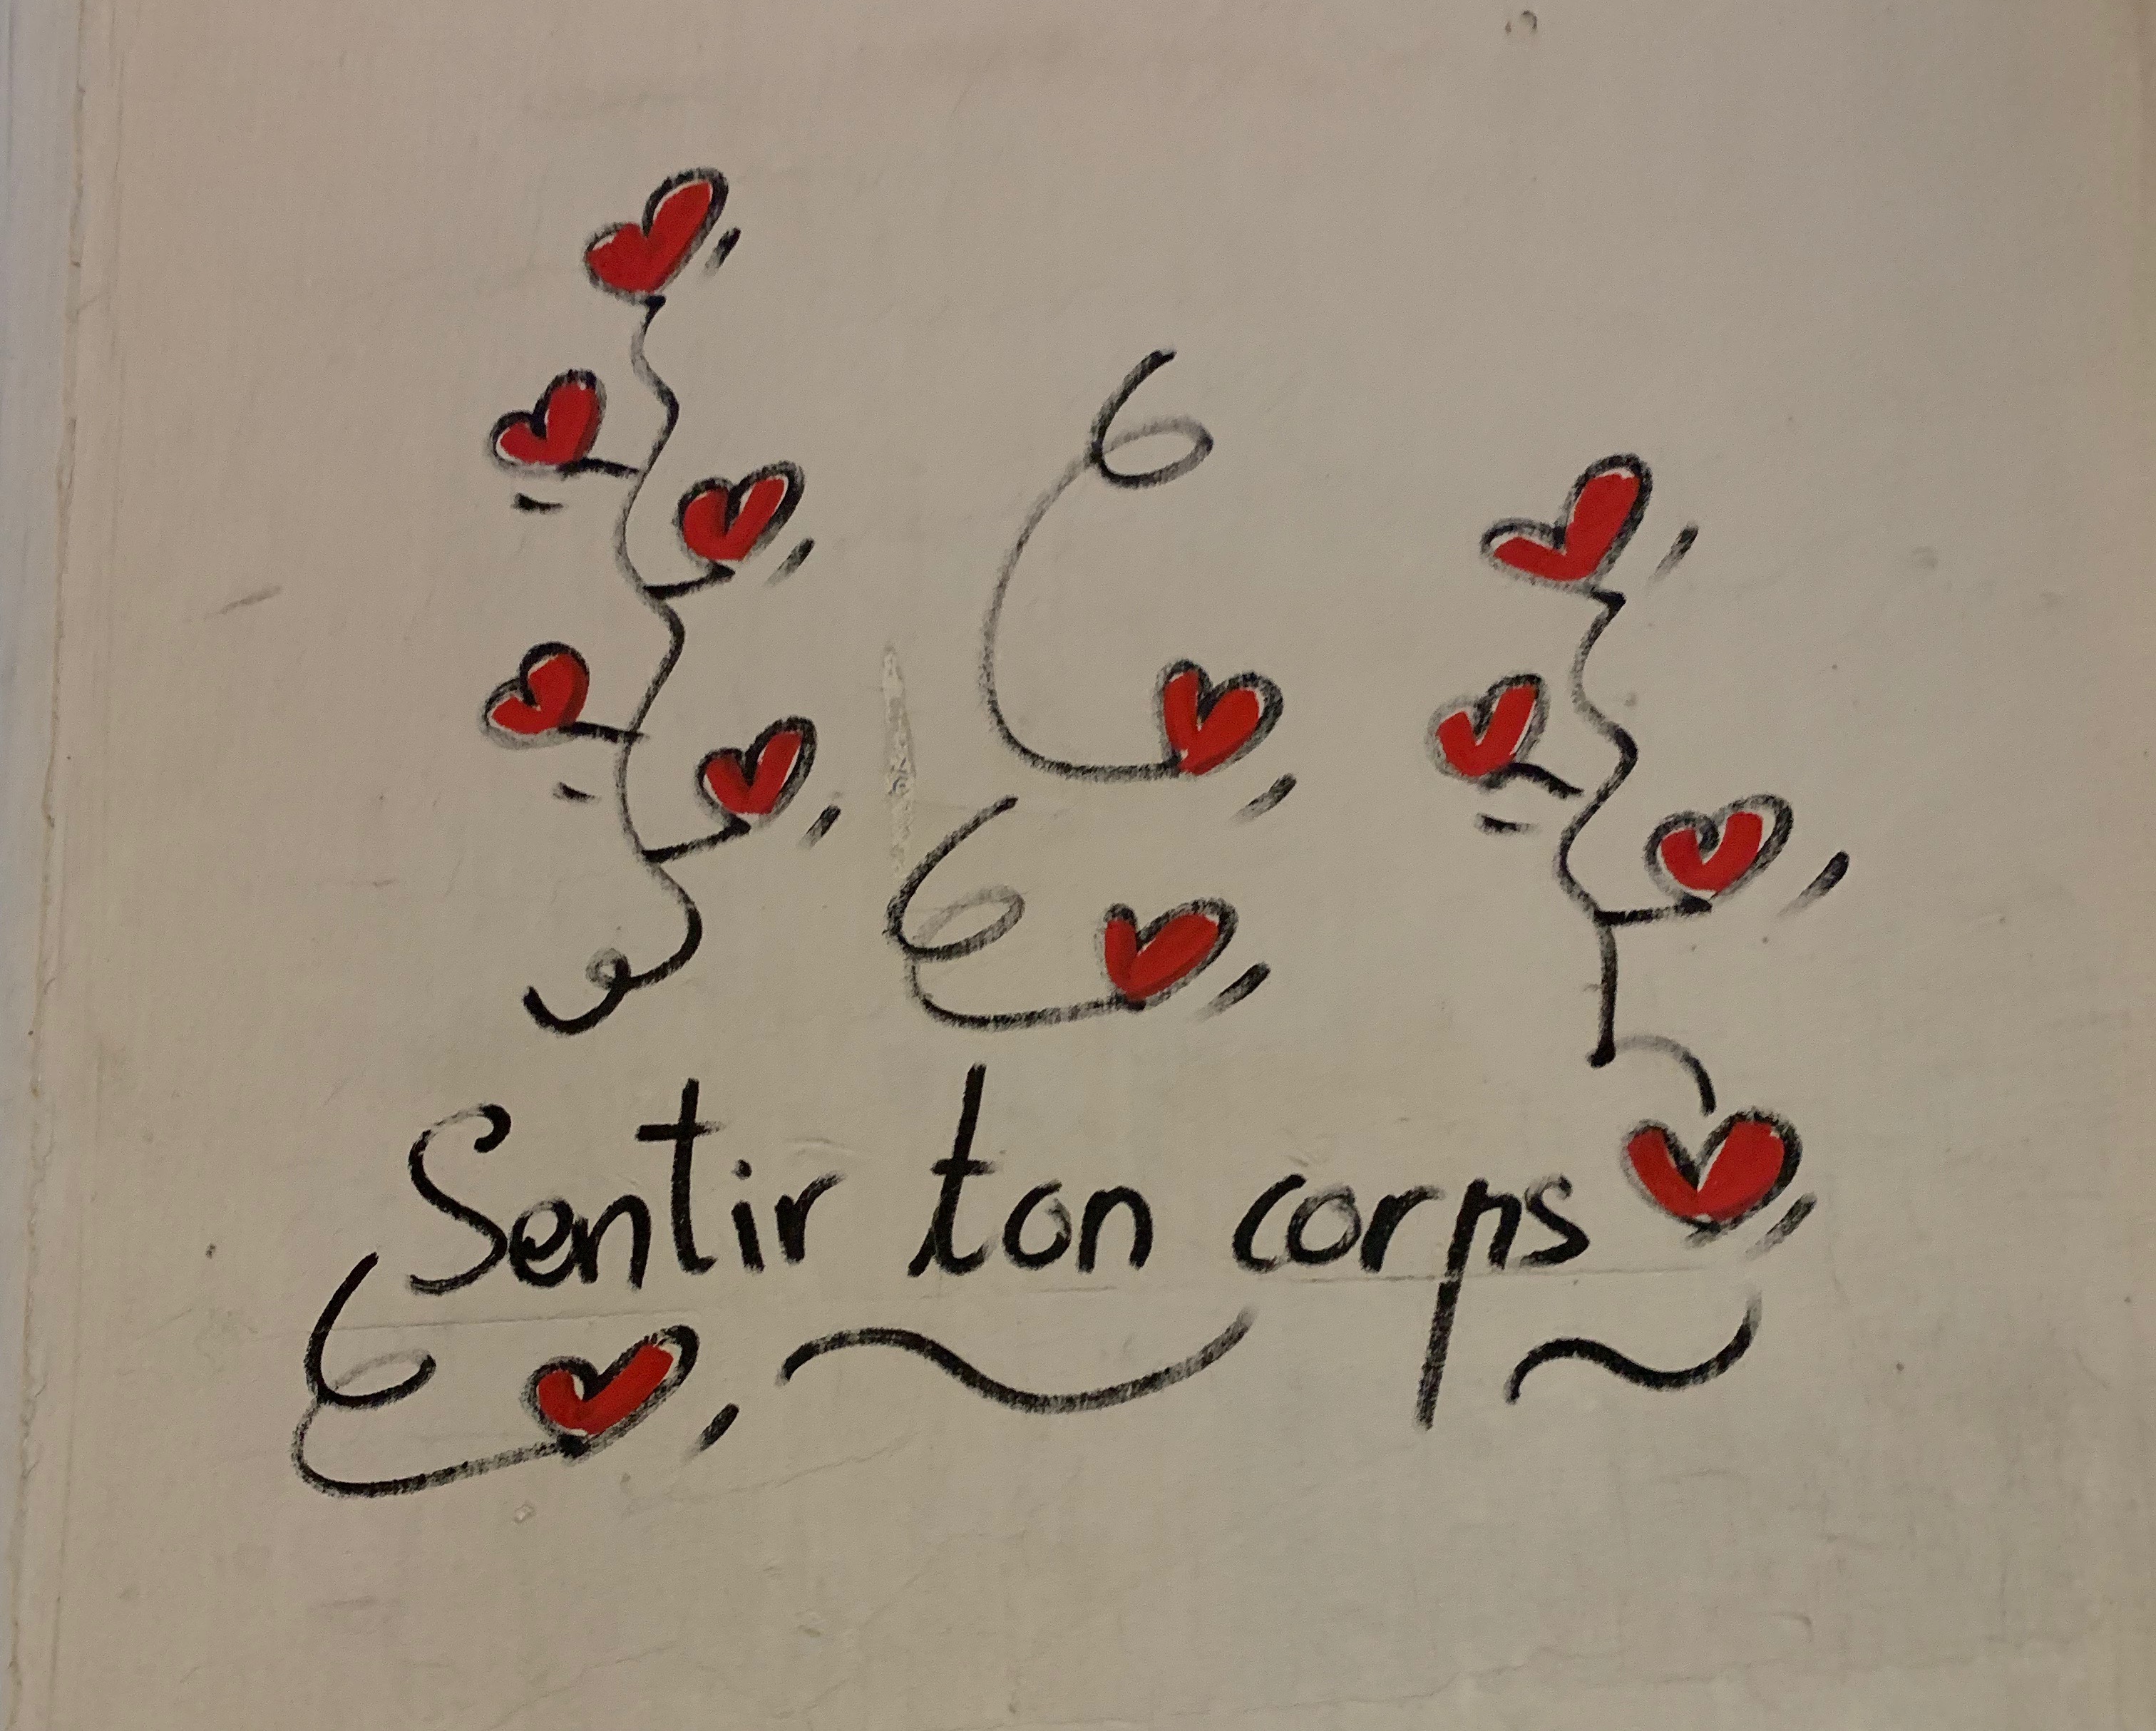 Sentir ton corps